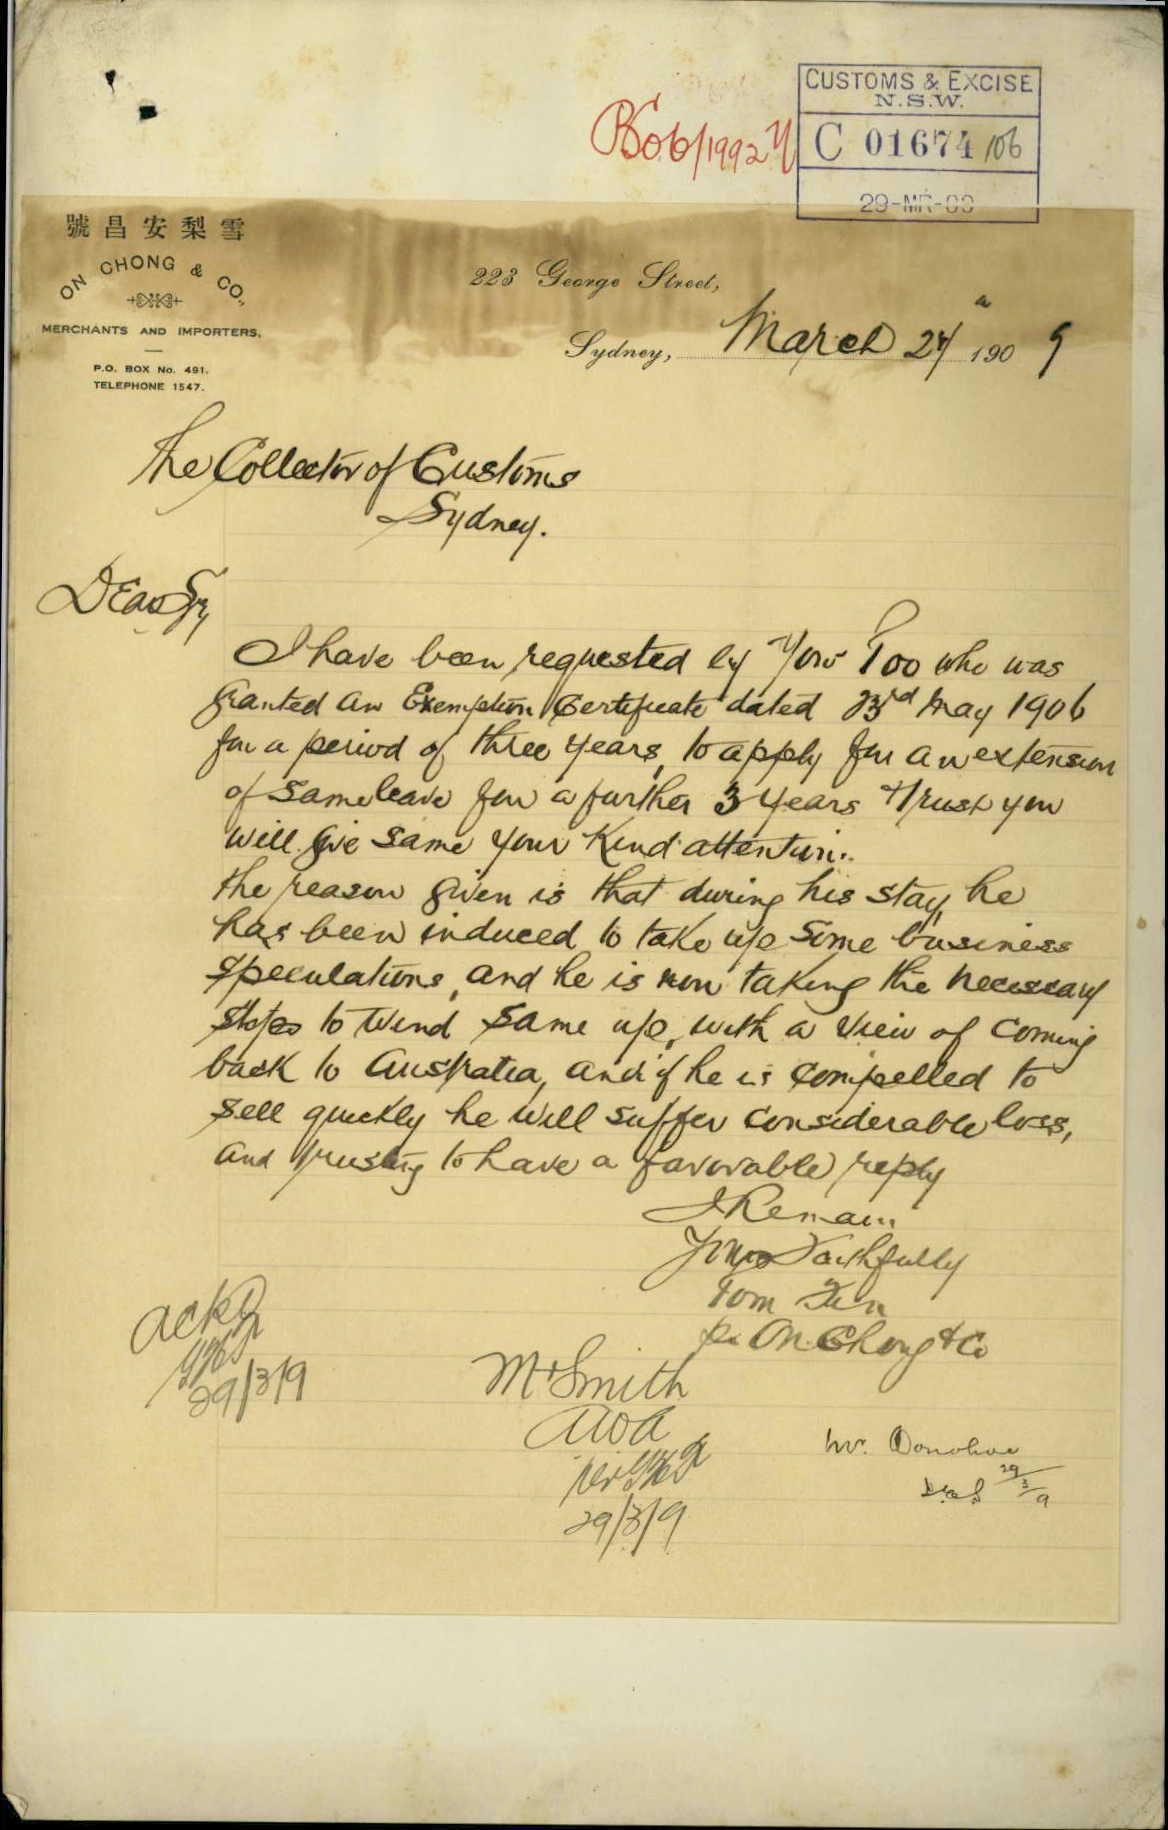 CUSTOMS & EXCISE
N.S.W.
C 01674 /06
29-MR-09
B06/1992
號昌安梨雪
ON CHONG & CO.,
MERCHANTS AND IMPORTERS.
P.O. BOX No. 491.
TELEPHONE 1547.
223 George Street,
Sydney, March 24 1909
The Collector of Customs
Sydney.
Dear Sir
I have been requested by Yow Too who was
granted an Exemption Certificate dated 23rd May 1906
for a period of three years, to apply for an extension
of same leave for a further 3 years & trust you
will give same your kind attention.
the reason given is that during his stay, he
has been induced to take up some business
speculations, and he is now taking the necessary
steps to wind same up, with a view of coming
back to Australia, and if he is compelled to
sell quickly he will suffer considerable loss,
and trusting to have a favorable reply
I Remain
Yours Faithfully
Tom
pr On Chong & Co
Ackd
29/3/9
Mr Smith
29/3/9
Mr. Donohoe
29/3/9